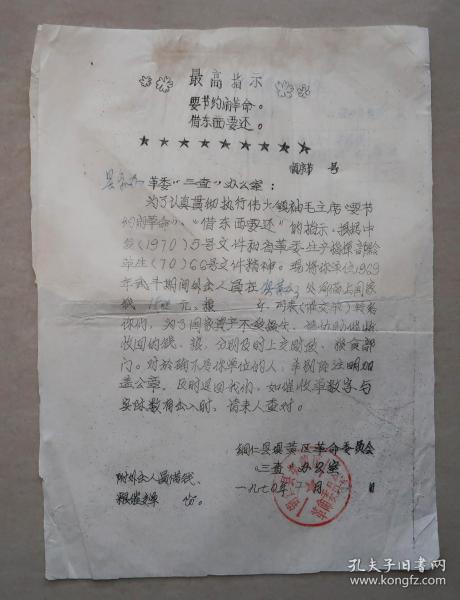 最高指示
要节约闹革命。
借东西要还。
字 号
革委“三查”办公室:
为了认真贯彻执行伟大领袖毛主席“要节
约闹革命”、“借东西要还”的指示,根据中
发(1970)5号文件和省革委生产指挥部
革生(70)66号文件精神。现将你单位1969
年 期间外出人员在 公 面上国家
钱 元,粮 斤,列表(催交单)转给
你们,为了国家资产不受损失,请协助催收
收回的钱、粮,分别及时上交财政、粮食部
门。对于确不是你单位的人,半月前注明加
盖公章,及时退回我们,如催收单数字与
实际数有出入时,请来人查对。
铜仁县 区革命委员会
“三查”办公室
一九七〇年 月 日
附外出人员借钱、
粮催交单 份。
孔夫子旧书网
www.kongfz.com